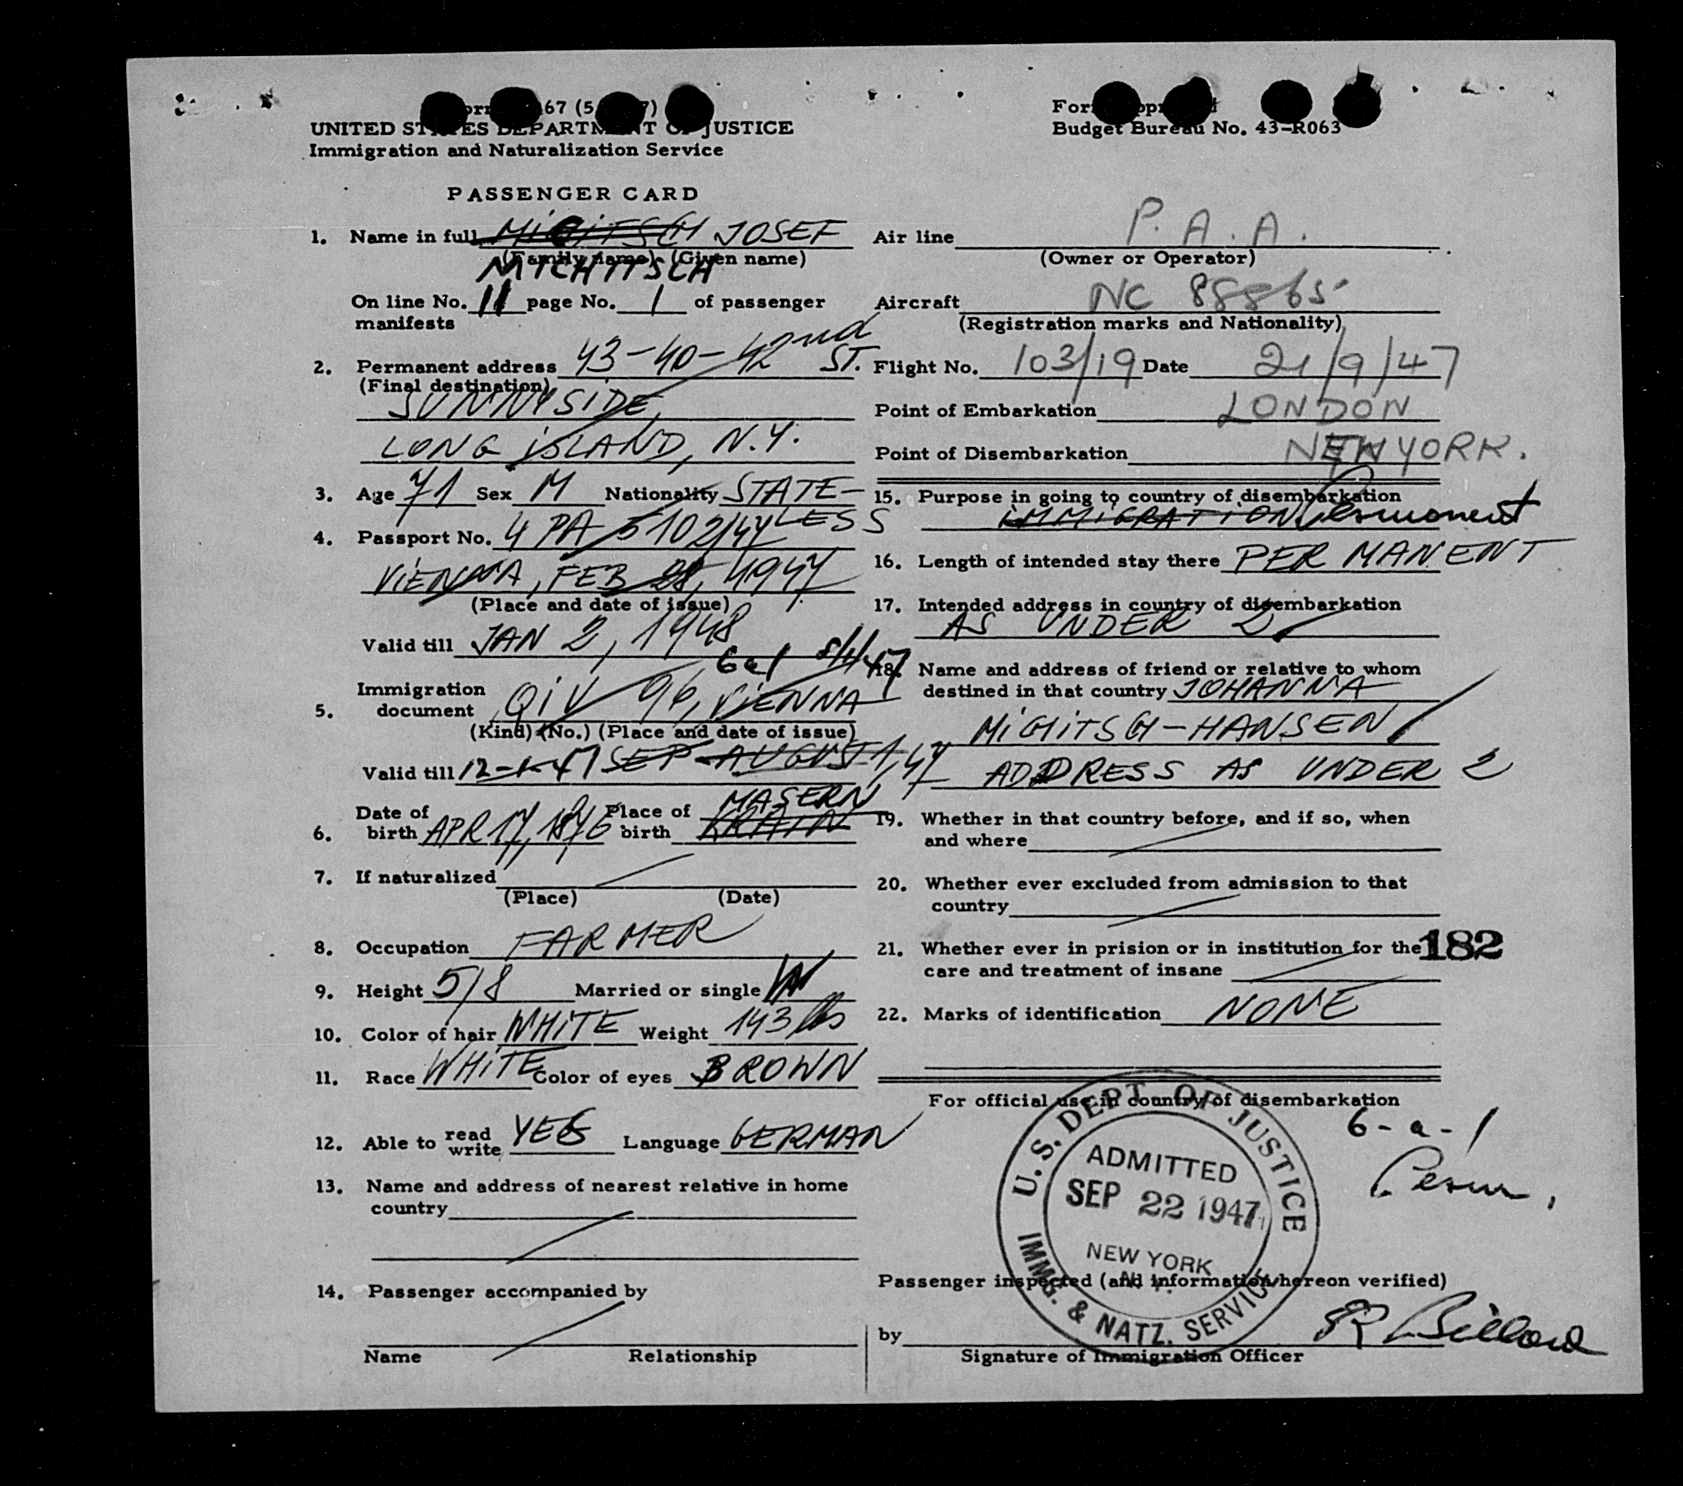 67 (5
UNITED STATES DEPARTMENT OF JUSTICE
Immigration and Naturalization Service
Form Approved
Budget Bureau No. 43-R063
PASSENGER CARD
1. Name in full JOSEF
(Family name) (Given name)
MICHITSCH
On line No. 11 page No. 1 of passenger
manifests
2. Permanent address 43-40-42nd ST.
(Final destination)
SUNNYSIDE,
LONG ISLAND, N.Y.
3. Age 71 Sex M Nationality STATE-
LESS
4. Passport No. 4 PA 5102/47
VIENNA, FEB 28, 1947
(Place and date of issue)
Valid till JAN 2, 1948
6a1 8/1/47
5. Immigration
document QIV 96, VIENNA
(Kind) (No.) (Place and date of issue)
Valid till 12-1-47 SEP AUGUST 1, 47
6. Date of
birth APR 17, 1876 Place of
birth MASERN
KRAIN
7. If naturalized
(Place) (Date)
8. Occupation FARMER
9. Height 5/8 Married or single W
10. Color of hair WHITE Weight 143 lbs
11. Race WHITE Color of eyes BROWN
12. Able to read
write YES Language GERMAN
13. Name and address of nearest relative in home
country
14. Passenger accompanied by
Name Relationship
Air line P.A.A.
(Owner or Operator)
Aircraft NC 88865
(Registration marks and Nationality)
Flight No. 103/19 Date 21/9/47
Point of Embarkation LONDON
Point of Disembarkation NEW YORK.
15. Purpose in going to country of disembarkation
IMMIGRATION Permanent
16. Length of intended stay there PERMANENT
17. Intended address in country of disembarkation
AS UNDER 2
18. Name and address of friend or relative to whom
destined in that country JOHANNA
MIGITSCH-HANSEN
ADDRESS AS UNDER 2
19. Whether in that country before, and if so, when
and where
20. Whether ever excluded from admission to that
country
21. Whether ever in prision or in institution for the 182
care and treatment of insane
22. Marks of identification NONE
For official use in country of disembarkation
6-a-1
Perm.
U.S. DEPT. OF JUSTICE
ADMITTED
SEP 22 1947
NEW YORK
N.Y.
IMMG. & NATZ. SERVICE
Passenger inspected (and information hereon verified)
by
Signature of Immigration Officer